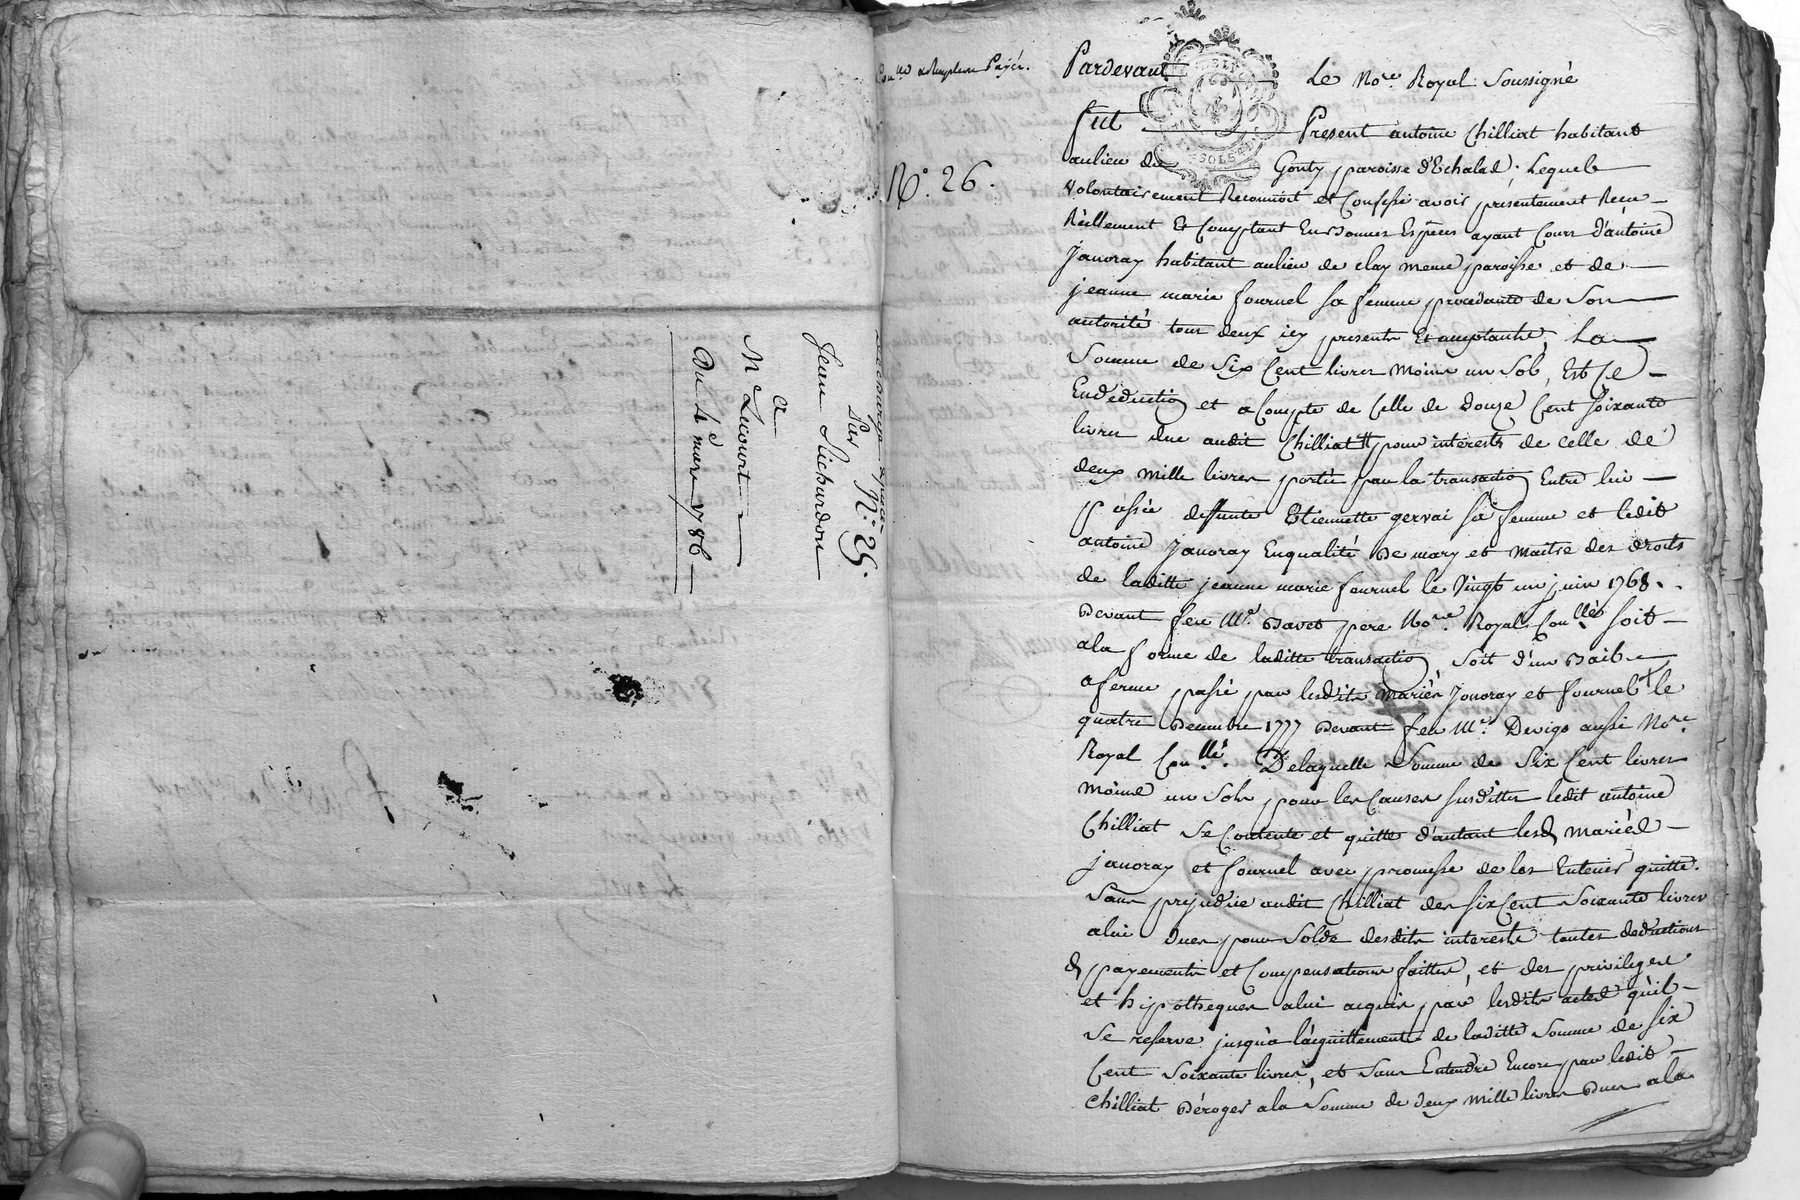 N°. 25.
Par
Jean Lichardon
a
Mc Lecourt
Du 4e mars 1786
Payée.
N°. 26.
Pardevant Le Nore. Royal Soussigné
fut Present antoine Chilliat habitant
aulieu du Gonty paroisse d'Echalad. Lequel
volontairement Reconnoit et Confesse avoir présentement Recu
Réellement Et Comptant En bonnes Espèces ayant Cours d'antoine
Janoray habitant aulieu de clay meme paroisse et de
jeanne marie fournel sa femme procédante de Son
autorité tous deux icy presents Et acceptants, La
Somme de Six Cent livres Moins un Sol, Est Ce
En déduction et a Compte de Celle de douze Cent Soixante
livres due audit Chilliat pour interests de celle de
deux mille livres portée par la transaction Entre lui
passée deffunte Etiennette gervai sa femme et ledit
antoine Janoray Enqualité De mary et maitre des droits
de laditte jeanne marie fournel le Vingt un juin 1768.
Devant feu Me. Davet pere Nore. Royal Conllér soit
ala forme de laditte transaction, Soit d'un Bail
a ferme passé par lesdits mariés Janoray et fournel le
quatre Decembre 1777 Devant feu Me. Devigo aussi Nore.
Royal Conllé. Delaquelle Somme de Six Cent livres
moins un Sols pour les Causes Susdittes ledit antoine
Chilliat Se Contente et quitte d'autant lesd mariéd
janoray et fournel avec promesse de les Entenir quitte.
Sans prejudice audit Chilliat des six Cent Soixante livres
alui Dues pour Solde desdits interests toutes deductions
& payements et Compensations faittes, et des privileges
et hipotheques alui acquis par lesdits actes qu'il
Se reserve jusqu'a l'acquittements de laditte Somme de Six
Cent Soixante livres, et Sans Entendre Encore par ledit
Chilliat Déroger ala Somme de deux mille livres Dues ala